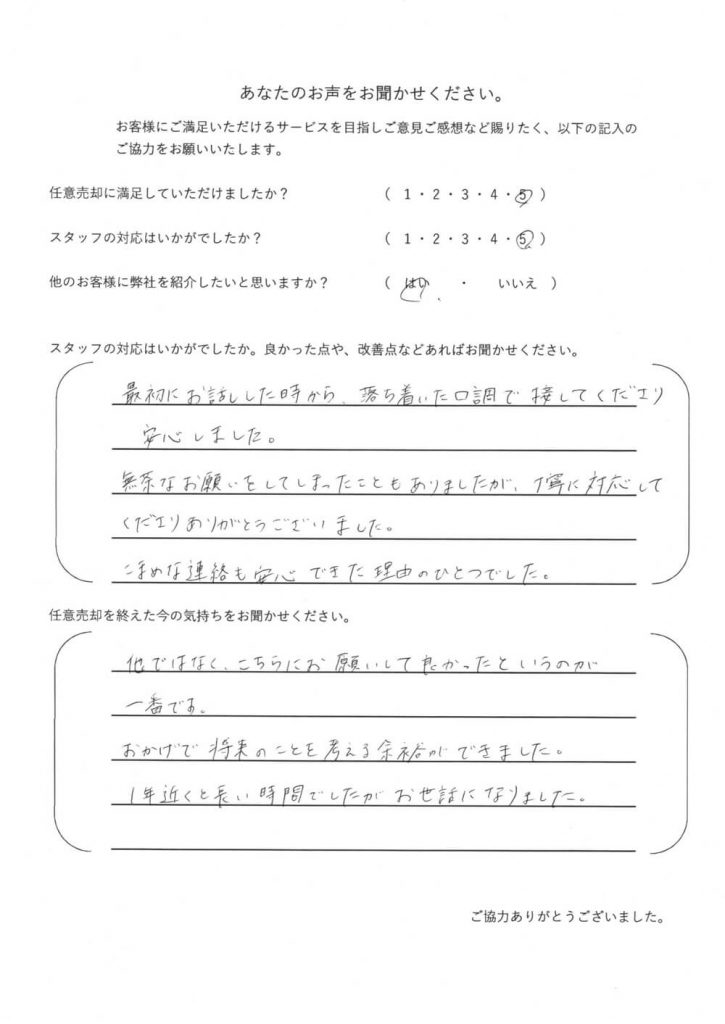 あなたのお声をお聞かせください。
お客様にご満足いただけるサービスを目指しご意見ご感想など賜りたく、以下の記入の
ご協力をお願いいたします。
任意売却に満足していただけましたか？ （ 1・2・3・4・5 ）
スタッフの対応はいかがでしたか？ （ 1・2・3・4・5 ）
他のお客様に弊社を紹介したいと思いますか？ （ はい ・ いいえ ）
スタッフの対応はいかがでしたか。良かった点や、改善点などあればお聞かせください。
最初にお話しした時から、落ち着いた口調で接してくださり
安心しました。
無茶なお願いをしてしまったこともありましたが、丁寧に対応して
くださりありがとうございました。
こまめな連絡も安心できた理由のひとつでした。
任意売却を終えた今の気持ちをお聞かせください。
他ではなく、こちらにお願いして良かったというのが
一番です。
おかげで将来のことを考える余裕ができました。
1年近くと長い時間でしたがお世話になりました。
ご協力ありがとうございました。